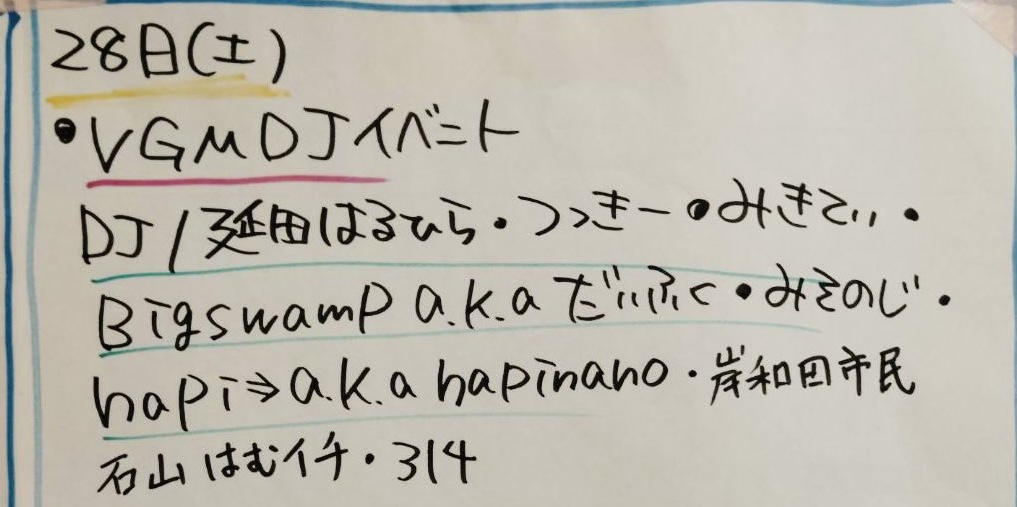 28日(土)
•VGMDJイベント
DJ/延田はるひら・つっきー・みきてぃ・
Bigswamp a.k.a だいふく・みそのじ・
hapi⇒a.k.a hapinano・岸和田市民
石山はむイチ・314